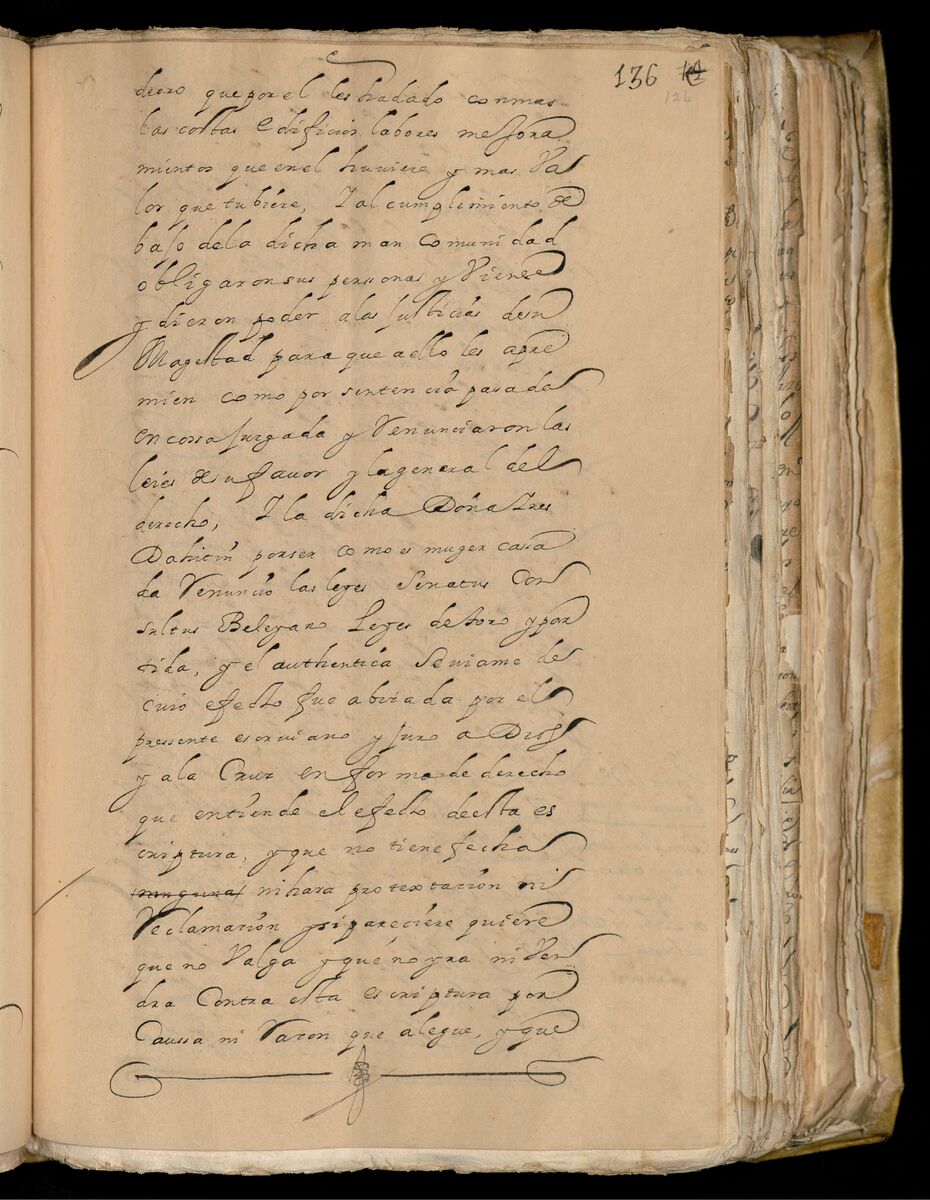 136 14
126
deoro que por el les hadado con mas
las costas Edificios labores mejora
mientos que en el huviere y mas Va
lor que tubiere, I al cumplimiento, de
bajo dela dicha man comunidad
obligaron sus personas y Vienes
y dieron poder alas Justicias desu
Magestad para que aello les apre
mien como por sentencia pasada
en cossa Jurgada y Renunciaron las
leies de su favor y la general del
derecho, I la dicha Doña Ines
Dahitin porser como es muger casa
da Renuncio las leyes Senatus Con
sultus Beleyano Leyes de toro y par
tida, y el authentica Seviame de
cuio efecto fue abisada por el
pressente escriviano y juro a Dios
y ala Cruz en forma de derecho
que entiende el efecto de esta es
criptura, y que no tiene fecha
ninguna ni hara protextacion ni
Reclamacion y si pareciere quiere
que no Valga y que no yra ni Ven
dra Contra esta escriptura por
Caussa ni Racon que alegue, y que